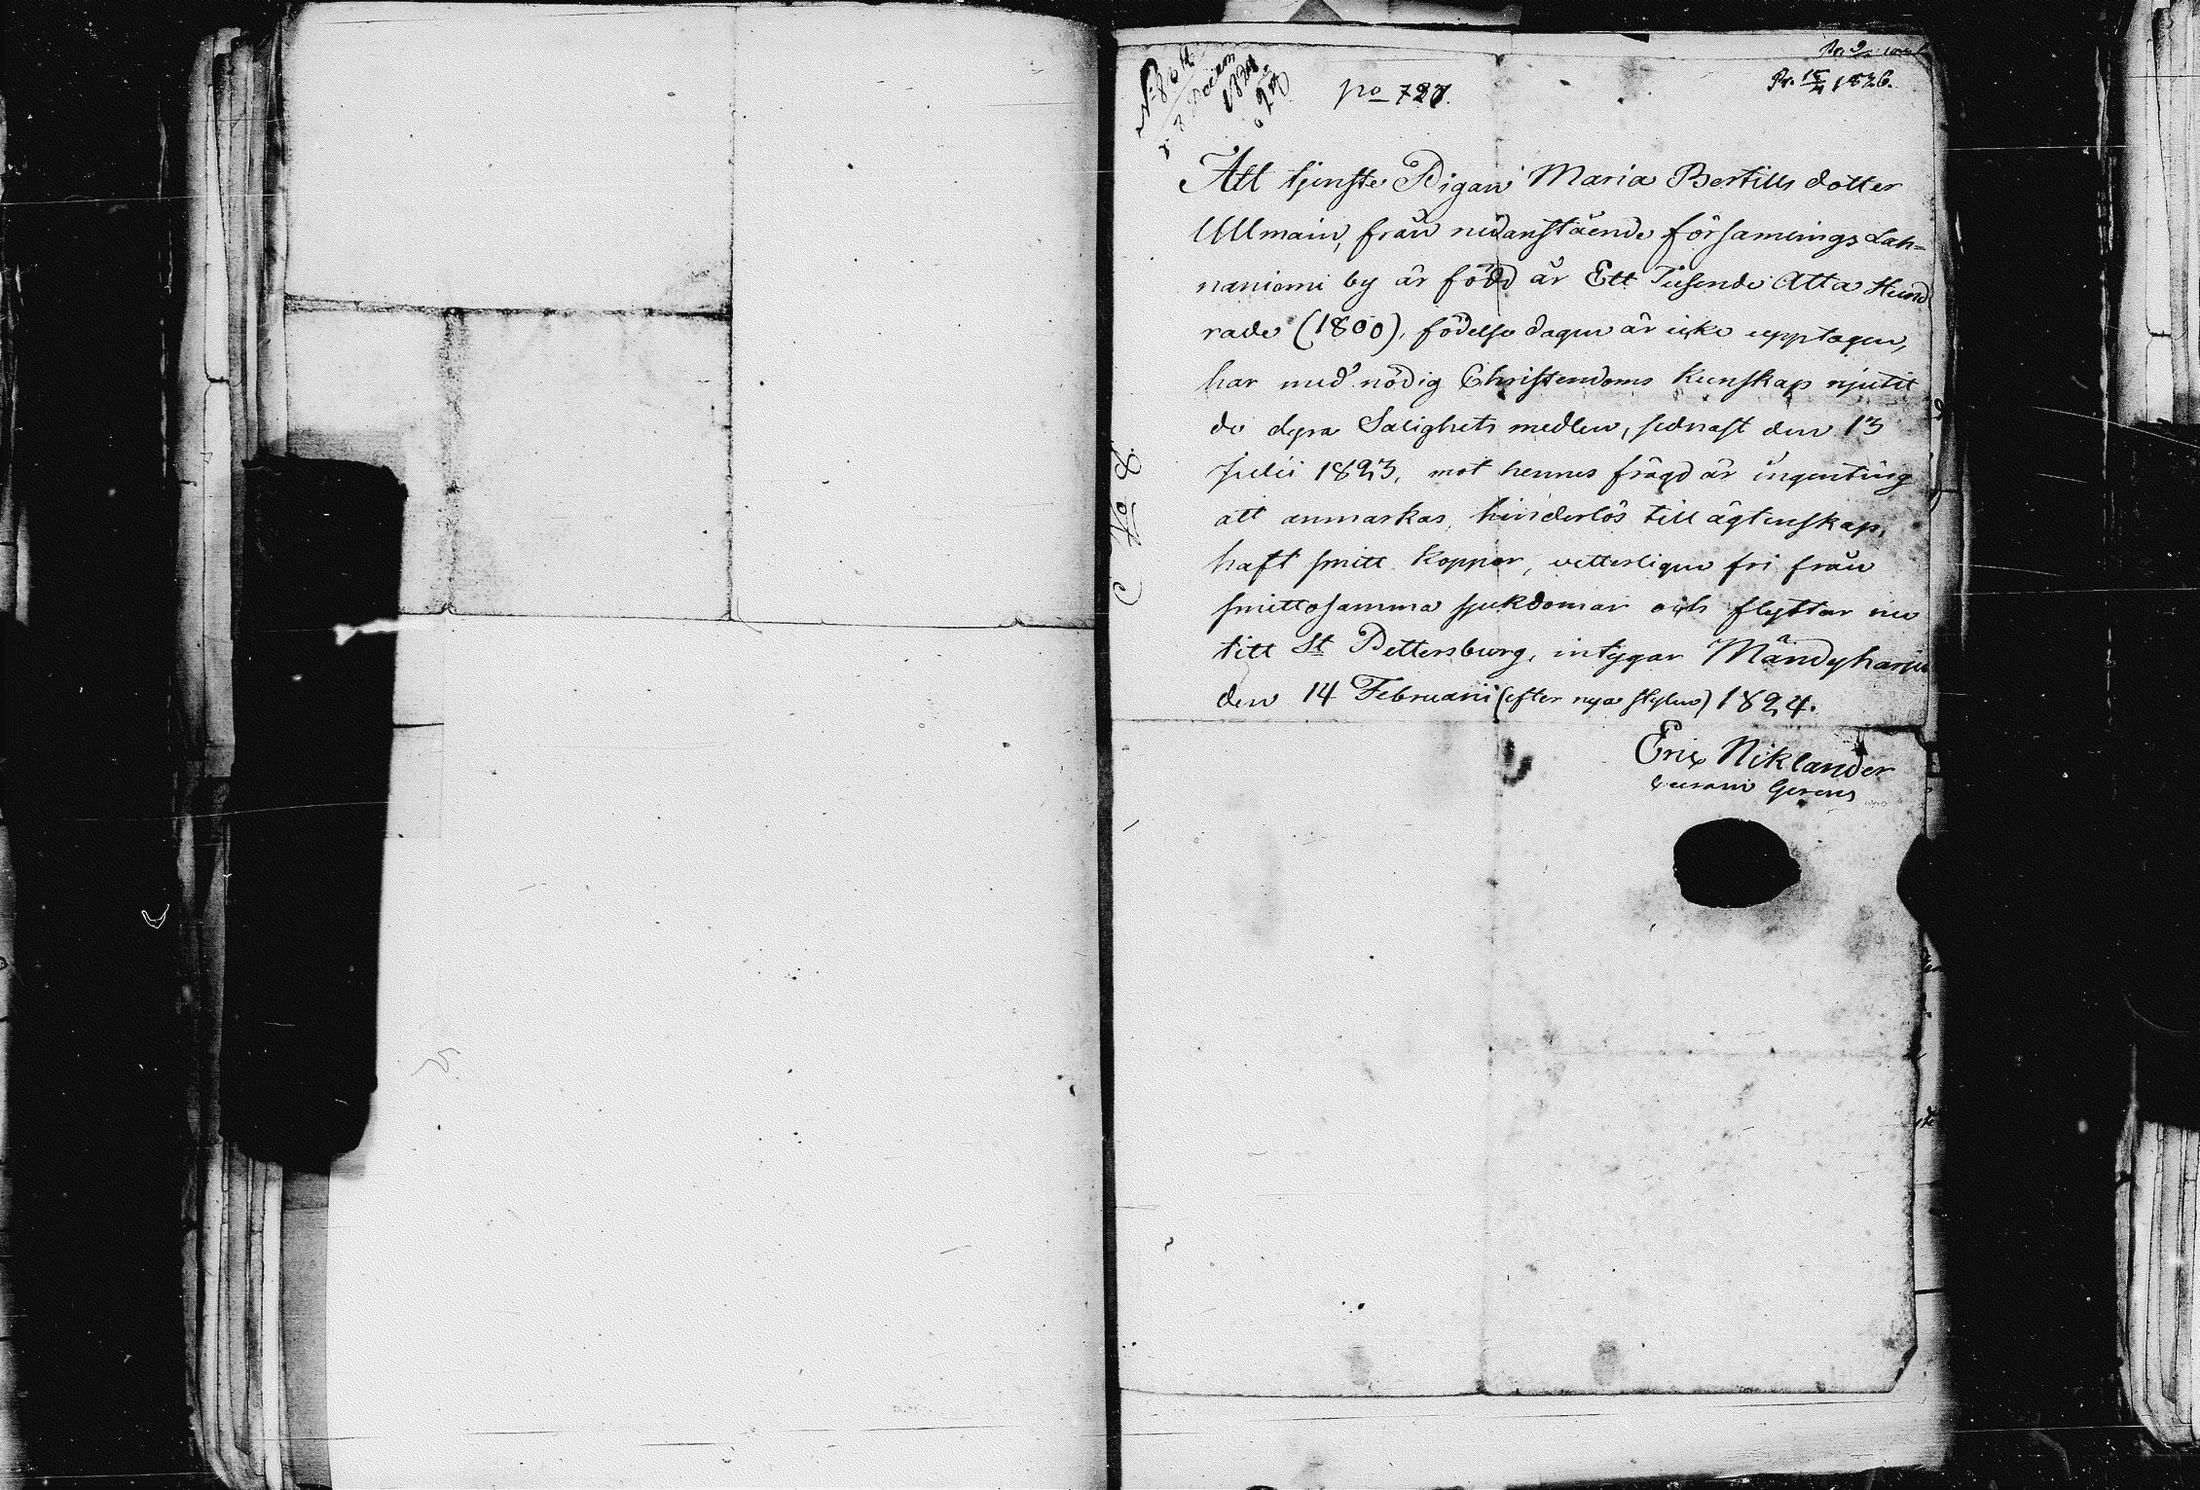 po 727.
Pr. 15/4 1826.
Att tjenste Pigan Maria Bertills dotter
Ullmain, från nedanstående församlings Lah=
naniemi by är född år Ett Tusende Åtta Hund
rade (1800), födelse dagen är icke upptagen,
har med nödig Christendoms kunskap njutit
de dyra Salighets medlen, sednast den 13
Julii 1823, mot hennes frägd är ingenting
att anmärkas, hinderlös till ägtenskap,
haft smitt koppor, vetterligen fri från
smittosamma sjukdomar och flyttar nu
till St Pettersburg, intygar Mändyharju
den 14 Februarii (efter nya stylen) 1824.
Eric Niklander
C No 8.